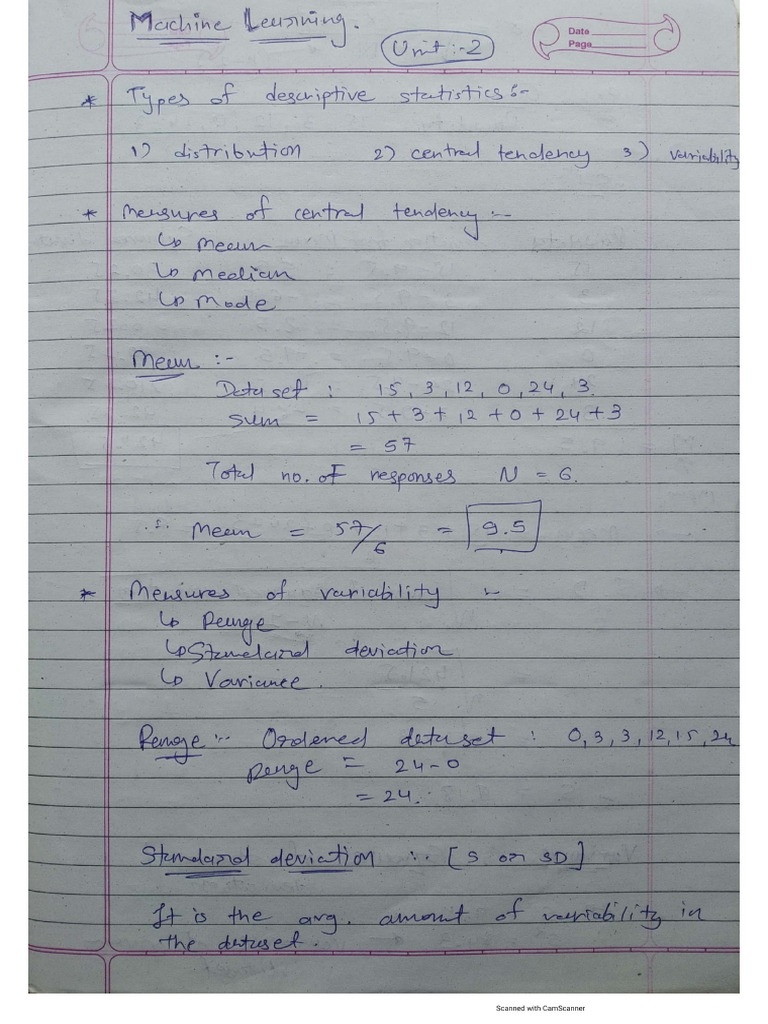 Machine Learning.
Unit :- 2
Date
Page
* Types of descriptive statistics :-
1) distribution 2) central tendency 3) variability
* Measures of central tendency :-
↳ Mean
↳ Median
↳ Mode
Mean :-
Dataset : 15, 3, 12, 0, 24, 3.
sum = 15 + 3 + 12 + 0 + 24 + 3
= 57
Total no. of responses N = 6.
∴ Mean = 57/6 = 9.5
* Measures of variability :-
↳ Range
↳ Standard deviation
↳ Variance.
Range :- Ordered dataset : 0, 3, 3, 12, 15, 24
Range = 24-0
= 24.
Standard deviation :- [S or SD]
It is the avg. amount of variability in
the dataset.
Scanned with CamScanner